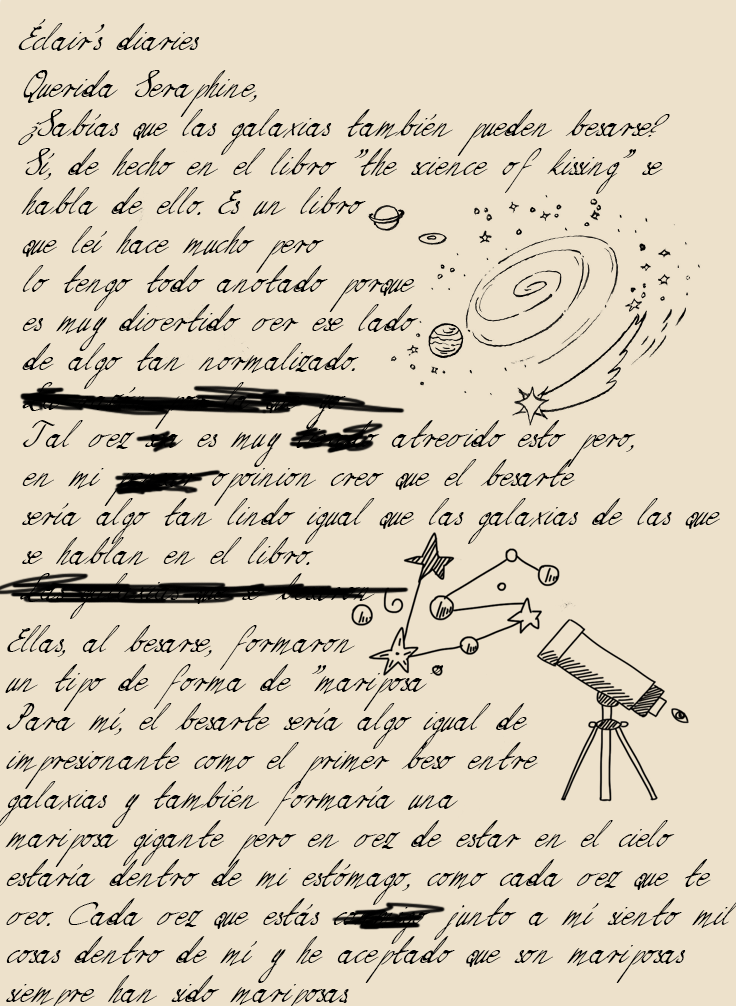 Éclair's diaries
Querida Seraphine,
¿Sabías que las galaxias también pueden besarse?
Sí, de hecho en el libro "the science of kissing" se
habla de ello. Es un libro
que leí hace mucho pero
lo tengo todo anotado porque
es muy divertido ver ese lado
de algo tan normalizado.
Tal vez es muy atrevido esto pero,
en mi opoinion creo que el besarte
sería algo tan lindo igual que las galaxias de las que
se hablan en el libro.
Ellas, al besarse, formaron
un tipo de forma de "mariposa"
Para mí, el besarte sería algo igual de
impresionante como el primer beso entre
galaxias y también formaría una
mariposa gigante pero en vez de estar en el cielo
estaría dentro de mi estómago, como cada vez que te
veo. Cada vez que estás junto a mí siento mil
cosas dentro de mí y he aceptado que son mariposas
siempre han sido mariposas